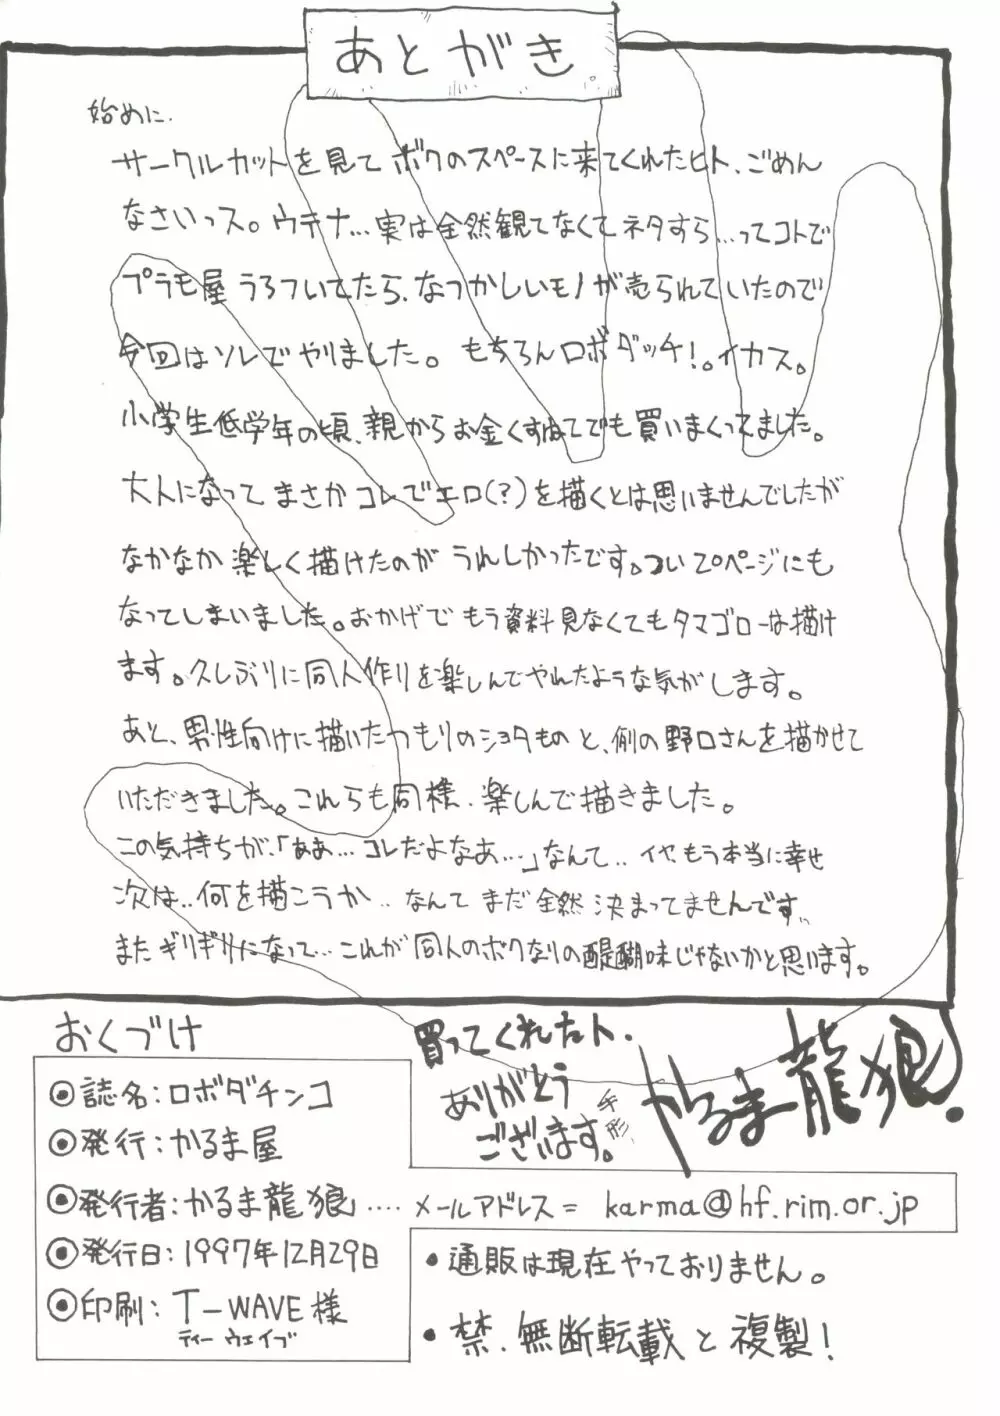 あとがき
始めに.
サークルカットを見てボクのスペースに来てくれたヒト、ごめん
なさいっス。ウテナ…実は全然観てなくてネタすら…ってコトで
プラモ屋うろついてたら、なつかしいモノが売られていたので
今回はソレでやりました。もちろんロボダッチ!。イカス。
小学生低学年の頃、親からお金くすねてでも買いまくってました。
大人になってまさかコレでエロ(?)を描くとは思いませんでしたが
なかなか楽しく描けたのがうれしかったです。つい20ページにも
なってしまいました。おかげでもう資料見なくてもタマゴローは描け
ます。久しぶりに同人作りを楽しんでやれたような気がします。
あと、男性向けに描いたつもりのショタものと、例の野口さんを描かせて
いただきました。これらも同様、楽しんで描きました。
この気持ちが、「ああ…コレだよなあ…」なんて‥イヤもう本当に幸せ
次は‥何を描こうか‥なんてまだ全然決まってませんです‥
またギリギリになって…これが同人のボクなりの醍醐味じゃないかと思います。
おくづけ
◉誌名:ロボダチンコ
◉発行:かるま屋
◉発行者:かるま龍狼‥‥メールアドレス= karma@hf.rim.or.jp
◉発行日:1997年12月29日
◉印刷:T-WAVE様
ティーウェイブ
買ってくれたヒト、
ありがとう
ございます。
手形、
かるま龍狼!
・通販は現在やっておりません。
・禁、無断転載と複製!